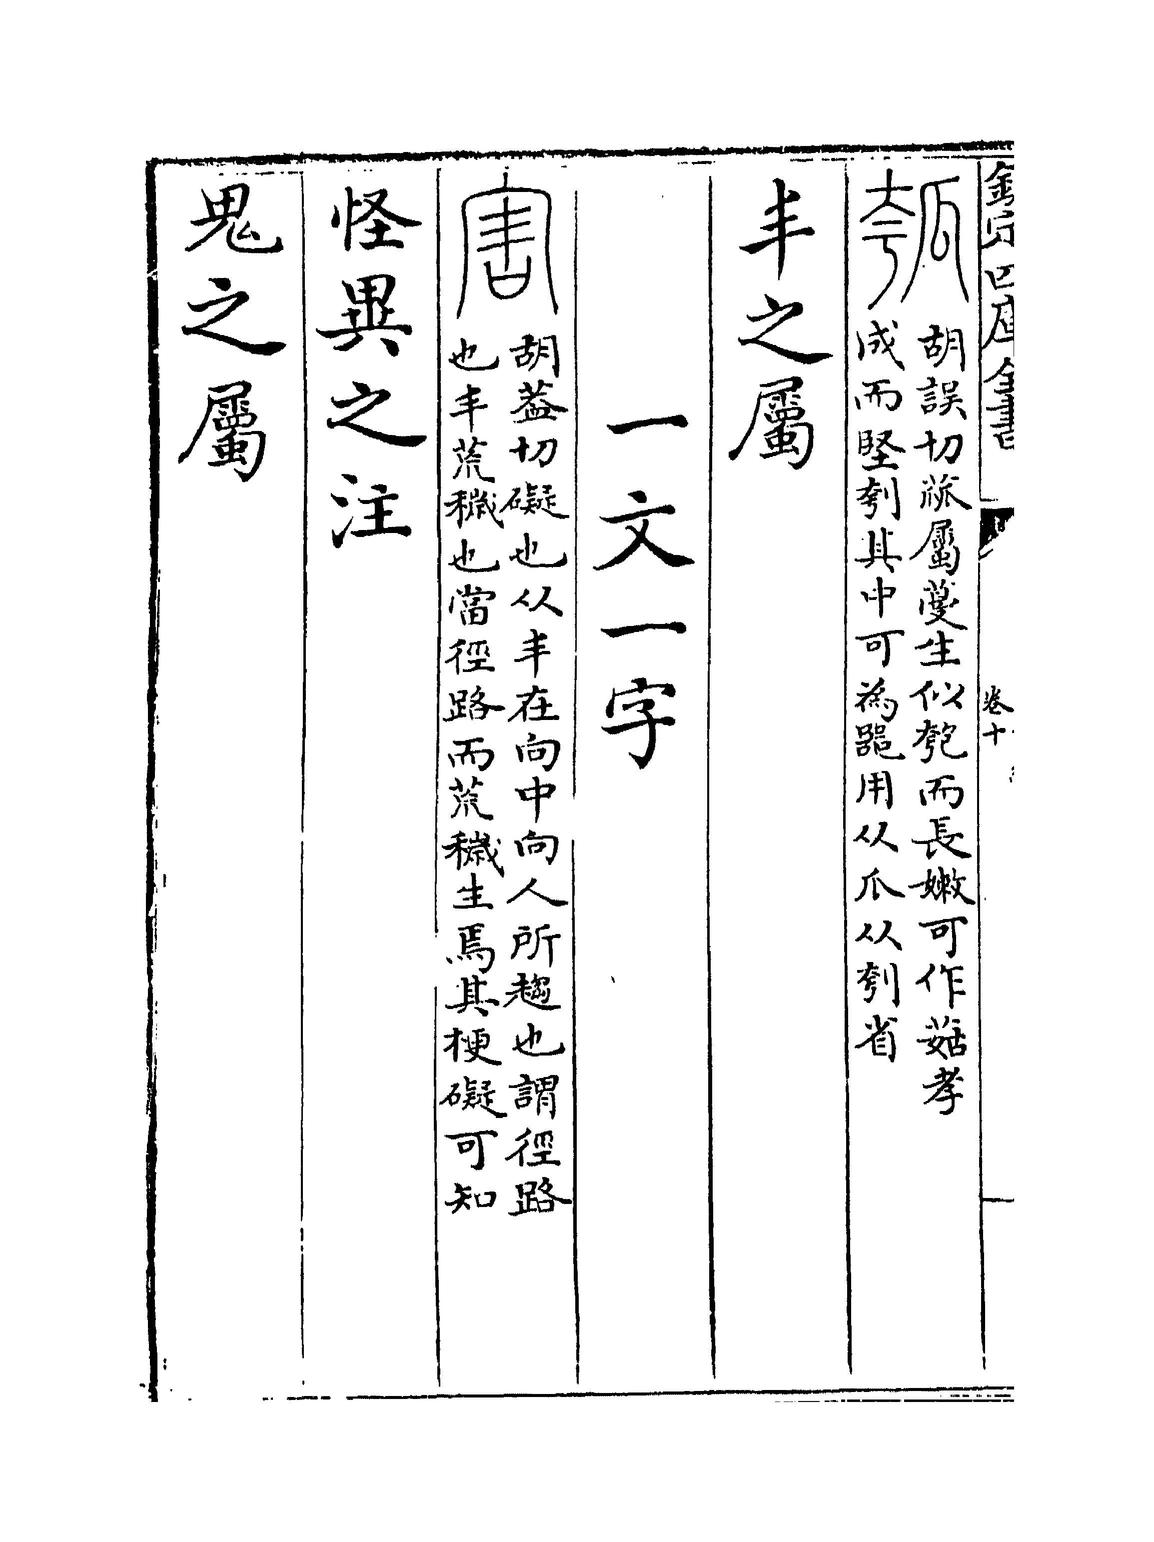 欽定四庫全書
卷十
瓠
胡誤切蓏屬蔓生似匏而長嫩可作菇孝
成而堅刳其中可為器用从瓜从刳省
丰之屬
一文一字
害
胡葢切礙也从丰在向中向人所趨也謂徑路
也丰荒穢也當徑路而荒穢生焉其梗礙可知
怪異之注
鬼之屬